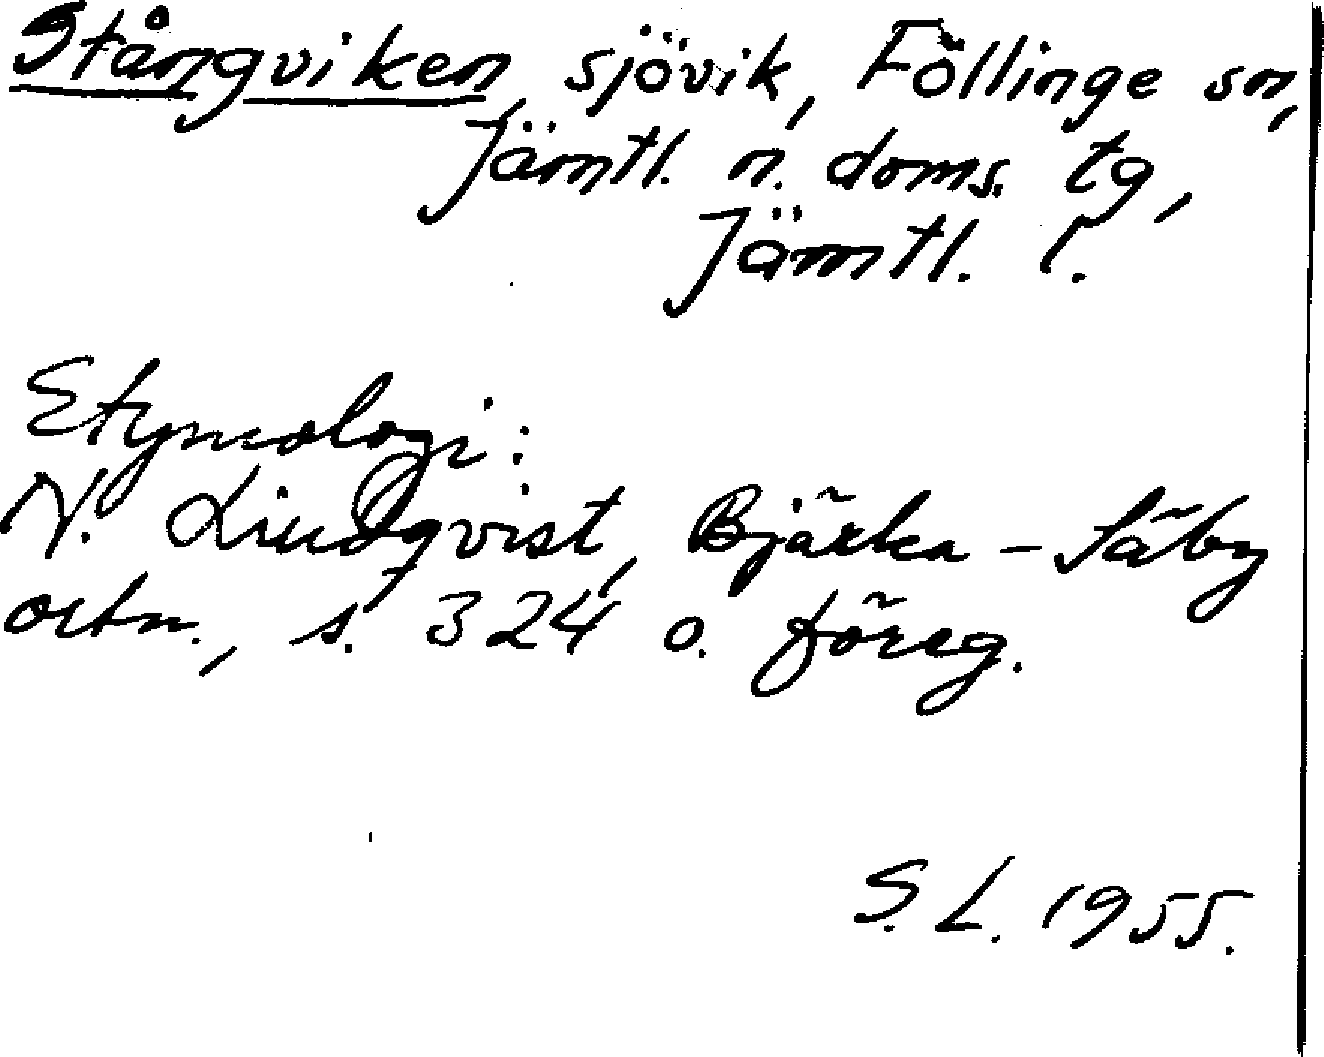 Stångviken, sjövik, Föllinge sn,
Jämtl. n. doms. tg,
Jämtl. l.
Etymologi:
N. Lindqvist, Bjärka-Säby
ortn., s. 324 o. föreg.
S. L. 1955.